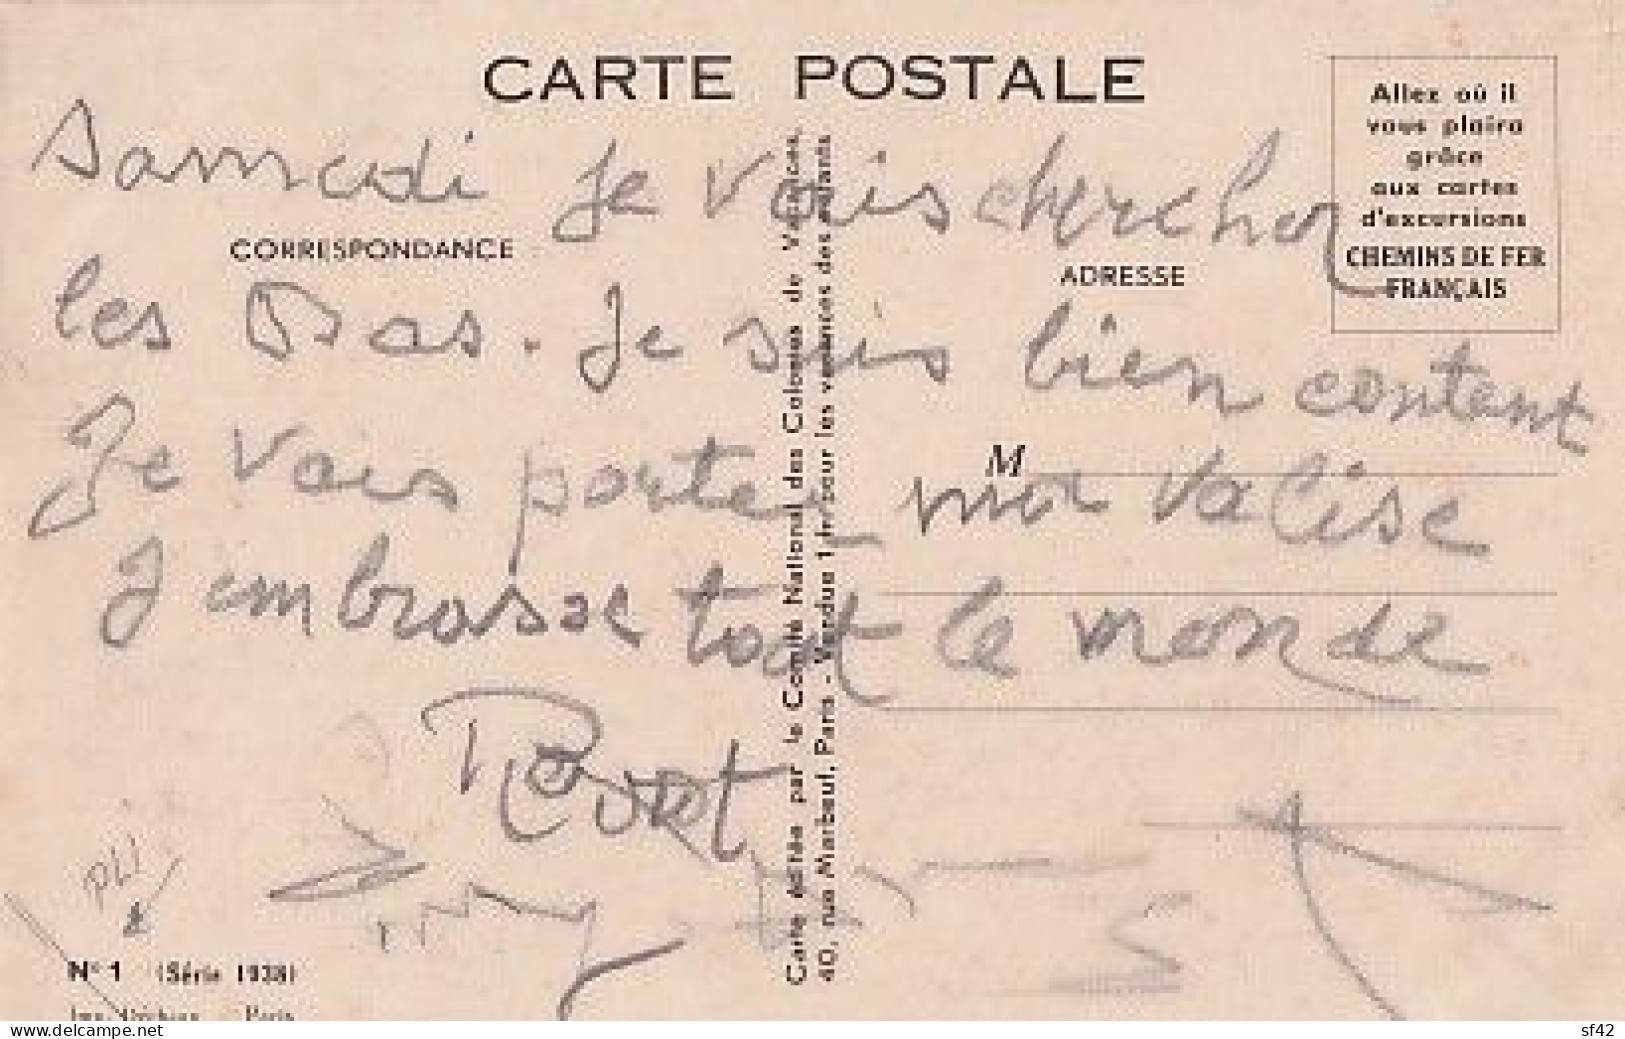 CARTE POSTALE
Allez où il
vous plaira
grâce
aux cartes
d'excursions
CHEMINS DE FER
FRANÇAIS
Samedi Je vais chercher
CORRESPONDANCE
ADRESSE
les Das. Je suis bien content
Je vais porter ma valise
M
J'embrasse tout le monde
Carte éditée par le Comité National des Colonies de Vacances,
40, rue Marbeuf, Paris - Vendue 1 fr. pour les vacances des enfants
PLI
N° 1 (Série 1938)
Imp. Paris
delcampe.net
sf42